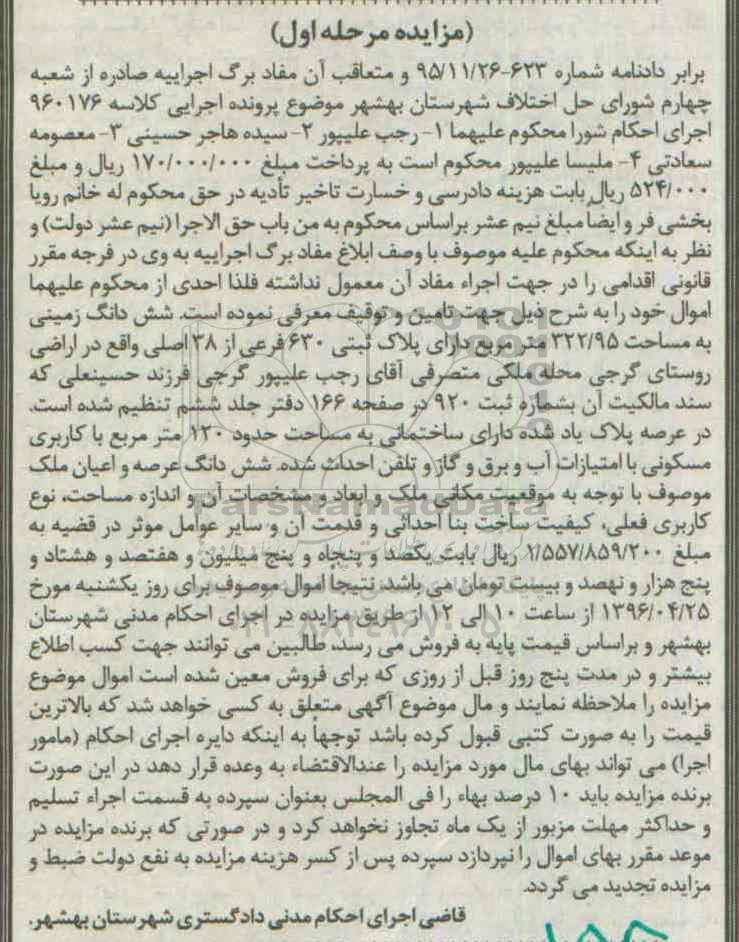 (مزایده مرحله اول)
برابر دادنامه شماره ۶۲۳-۹۵/۱۱/۲۶ و متعاقب آن مفاد برگ اجراییه صادره از شعبه
چهارم شورای حل اختلاف شهرستان بهشهر موضوع پرونده اجرایی کلاسه ۹۶۰۱۷۶
اجرای احکام شورا محکوم علیهما ۱- رجب علیپور ۲- سیده هاجر حسینی ۳- معصومه
سعادتی ۴- ملیسا علیپور محکوم است به پرداخت مبلغ ۱۷۰/۰۰۰/۰۰۰ ریال و مبلغ
۵۲۴/۰۰۰ ریال بابت هزینه دادرسی و خسارت تاخیر تأدیه در حق محکوم له خانم رویا
بخشی فر و ایضاً مبلغ نیم عشر براساس محکوم به من باب حق الاجرا (نیم عشر دولت) و
نظر به اینکه محکوم علیه موصوف با وصف ابلاغ مفاد برگ اجراییه به وی در فرجه مقرر
قانونی اقدامی را در جهت اجراء مفاد آن معمول نداشته فلذا احدی از محکوم علیهما
اموال خود را به شرح ذیل جهت تامین و توقیف معرفی نموده است. شش دانگ زمینی
به مساحت ۳۲۲/۹۵ متر مربع دارای پلاک ثبتی ۶۳۰ فرعی از ۳۸ اصلی واقع در اراضی
روستای گرجی محله ملکی متصرفی آقای رجب علیپور گرجی فرزند حسینعلی که
سند مالکیت آن بشماره ثبت ۹۲۰ در صفحه ۱۶۶ دفتر جلد ششم تنظیم شده است.
در عرصه پلاک یاد شده دارای ساختمانی به مساحت حدود ۱۲۰ متر مربع با کاربری
مسکونی با امتیازات آب و برق و گاز و تلفن احداث شده. شش دانگ عرصه و اعیان ملک
موصوف با توجه به موقعیت مکانی ملک و ابعاد و مشخصات آن و اندازه مساحت، نوع
کاربری فعلی، کیفیت ساخت بنا احداثی و قدمت آن و سایر عوامل موثر در قضیه به
مبلغ ۱/۵۵۷/۸۵۹/۲۰۰ ریال بابت یکصد و پنجاه و پنج میلیون و هفتصد و هشتاد و
پنج هزار و نهصد و بیست تومان می باشد. نتیجاً اموال موصوف برای روز یکشنبه مورخ
۱۳۹۶/۰۴/۲۵ از ساعت ۱۰ الی ۱۲ از طریق مزایده در اجرای احکام مدنی شهرستان
بهشهر و براساس قیمت پایه به فروش می رسد. طالبین می توانند جهت کسب اطلاع
بیشتر و در مدت پنج روز قبل از روزی که برای فروش معین شده است اموال موضوع
مزایده را ملاحظه نمایند و مال موضوع آگهی متعلق به کسی خواهد شد که بالاترین
قیمت را به صورت کتبی قبول کرده باشد توجهاً به اینکه دایره اجرای احکام (مامور
اجرا) می تواند بهای مال مورد مزایده را عندالاقتضاء به وعده قرار دهد در این صورت
برنده مزایده باید ۱۰ درصد بهاء را فی المجلس بعنوان سپرده به قسمت اجراء تسلیم
و حداکثر مهلت مزبور از یک ماه تجاوز نخواهد کرد و در صورتی که برنده مزایده در
موعد مقرر بهای اموال را نپردازد سپرده پس از کسر هزینه مزایده به نفع دولت ضبط و
مزایده تجدید می گردد.
قاضی اجرای احکام مدنی دادگستری شهرستان بهشهر.
ParsNamadData